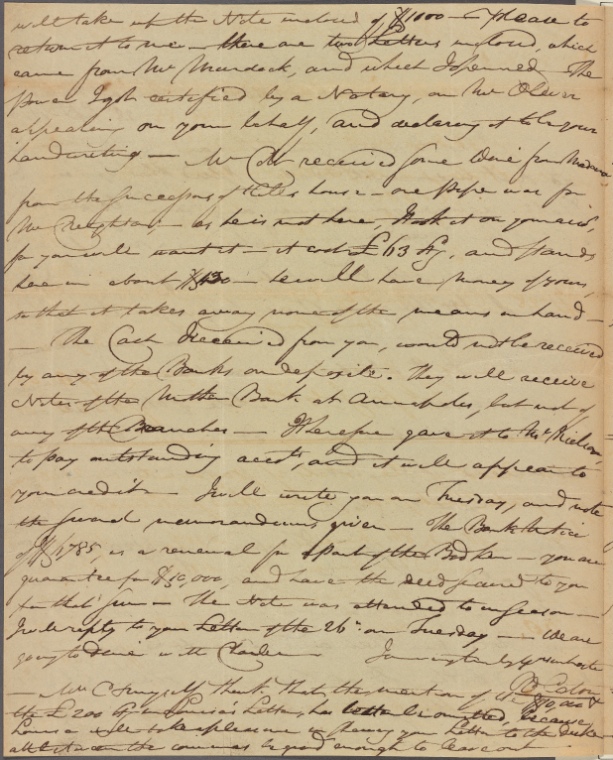 will take up the Note inclosed of $1000 — please to
return it to me — there are two Letters inclosed, which
came from Mr Murdock, and which I opened — The
Power I got certified by a Notary, on Mr Oliver
appearing on your behalf, and declaring it to be your
handwriting — Mr received some Wine from Madeira
from the Successors of house — one Pipe was for
Mr — as he is not here, I took it on your acct,
for you will want it — it cost £63 Stg, and stands
here in about — he will have money of yours,
so that it takes away none of the means in hand —
— The Cash I received from you, would not be received
by any of the Banks on deposite. They will receive
Notes of the Mother Bank at Annapolis, but not of
any of the Branches — I therefore gave it to Mr
to pay outstanding accts, and it will appear to
your credit — I will write you on Tuesday, and note
the several memorandums given — The Bank Notice
of as a renewal for a part of the — you are
guarantee for $50,000, and have the deed secured to you
for that sum — The Note was attended to in season —
I will reply to your Letter of the 26th on Tuesday — We are
going to dine with Charles —
— Mr C & myself think that the mention of the $10,000 &
the £200 Stg in Letter, had better be omitted, because
will take pleasure in your Letter to the
all be good enough to leave out